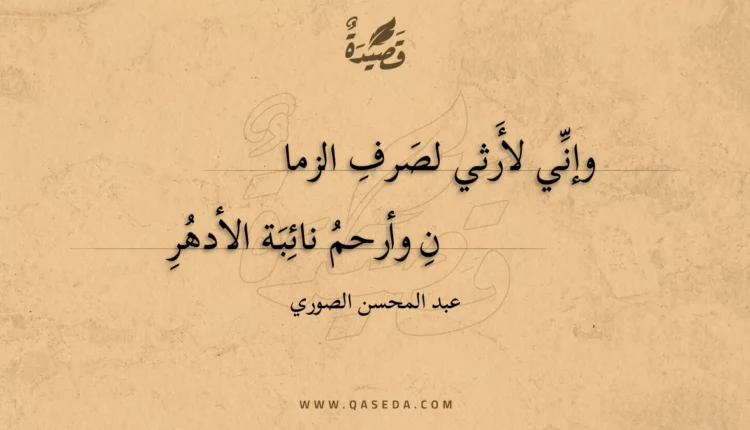 قَصِيْدَةٌ
وإنِّي لأَرثي لصَرفِ الزما
نِ وأرحمُ نائِبَة الأدهُرِ
عبد المحسن الصوري
WWW.QASEDA.COM